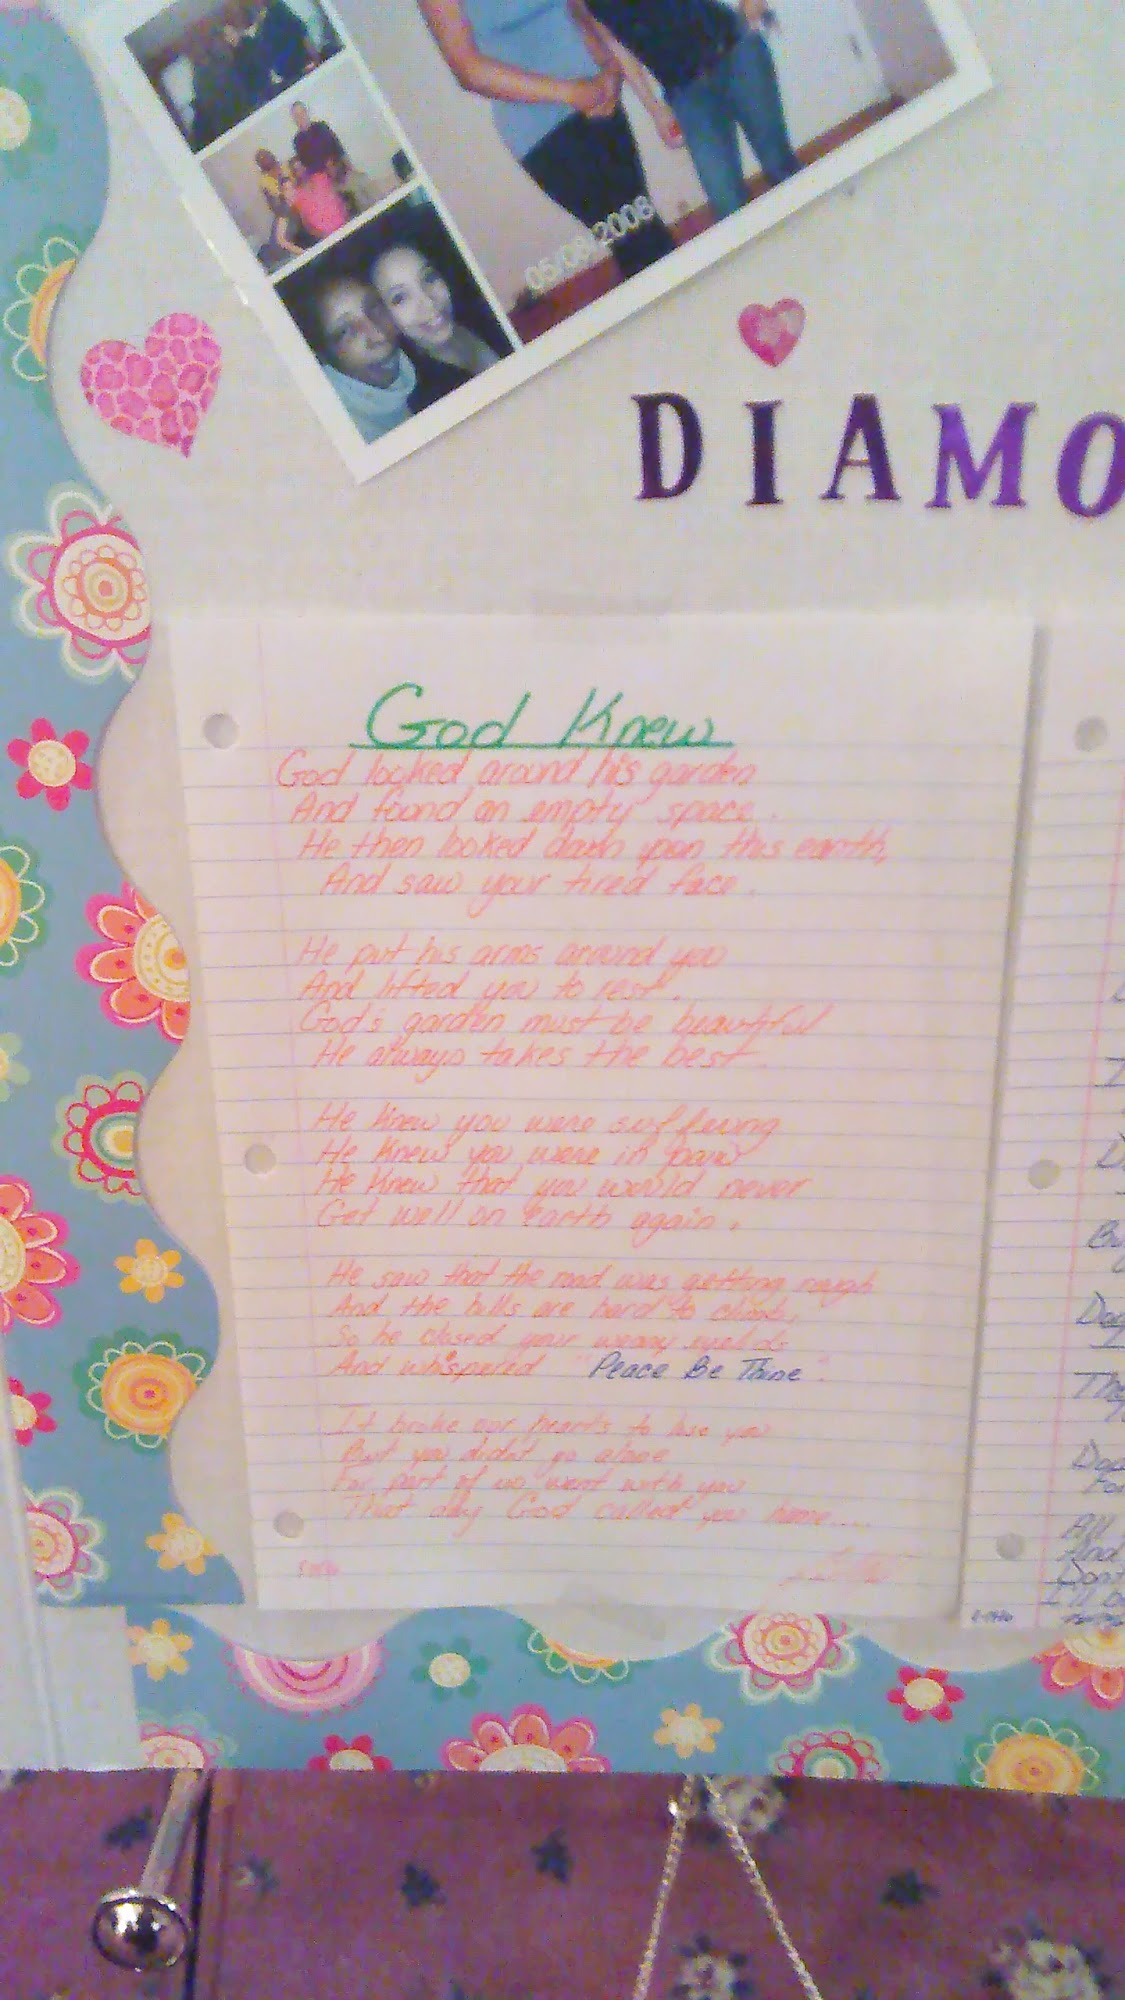 05/08/2008
DIAMO
God Knew
God looked around his garden
And found an empty space.
He then looked down upon this earth,
And saw your tired face.
He put his arms around you
And lifted you to rest.
God's garden must be beautiful
He always takes the best.
He knew you were suffering
He knew you were in pain
He knew that you would never
Get well on Earth again.
He saw that the road was getting rough
And the hills are hard to climb,
So he closed your weary eyelids
And whispered "Peace Be Thine".
It broke our hearts to lose you
But you didnt go alone
For part of us went with you
That day God called you home.....
All
And
Dont
I'll